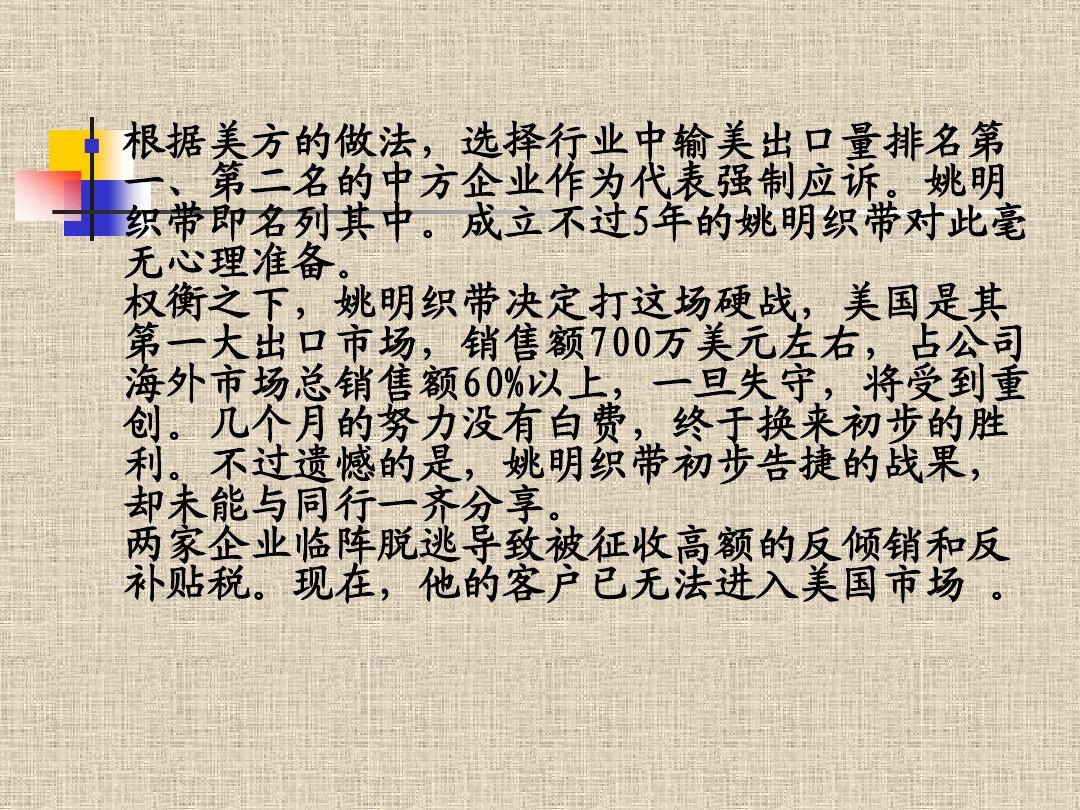 根据美方的做法，选择行业中输美出口量排名第
一、第二名的中方企业作为代表强制应诉。姚明
织带即名列其中。成立不过5年的姚明织带对此毫
无心理准备。
权衡之下，姚明织带决定打这场硬战，美国是其
第一大出口市场，销售额700万美元左右，占公司
海外市场总销售额60%以上，一旦失守，将受到重
创。几个月的努力没有白费，终于换来初步的胜
利。不过遗憾的是，姚明织带初步告捷的战果，
却未能与同行一齐分享。
两家企业临阵脱逃导致被征收高额的反倾销和反
补贴税。现在，他的客户已无法进入美国市场 。